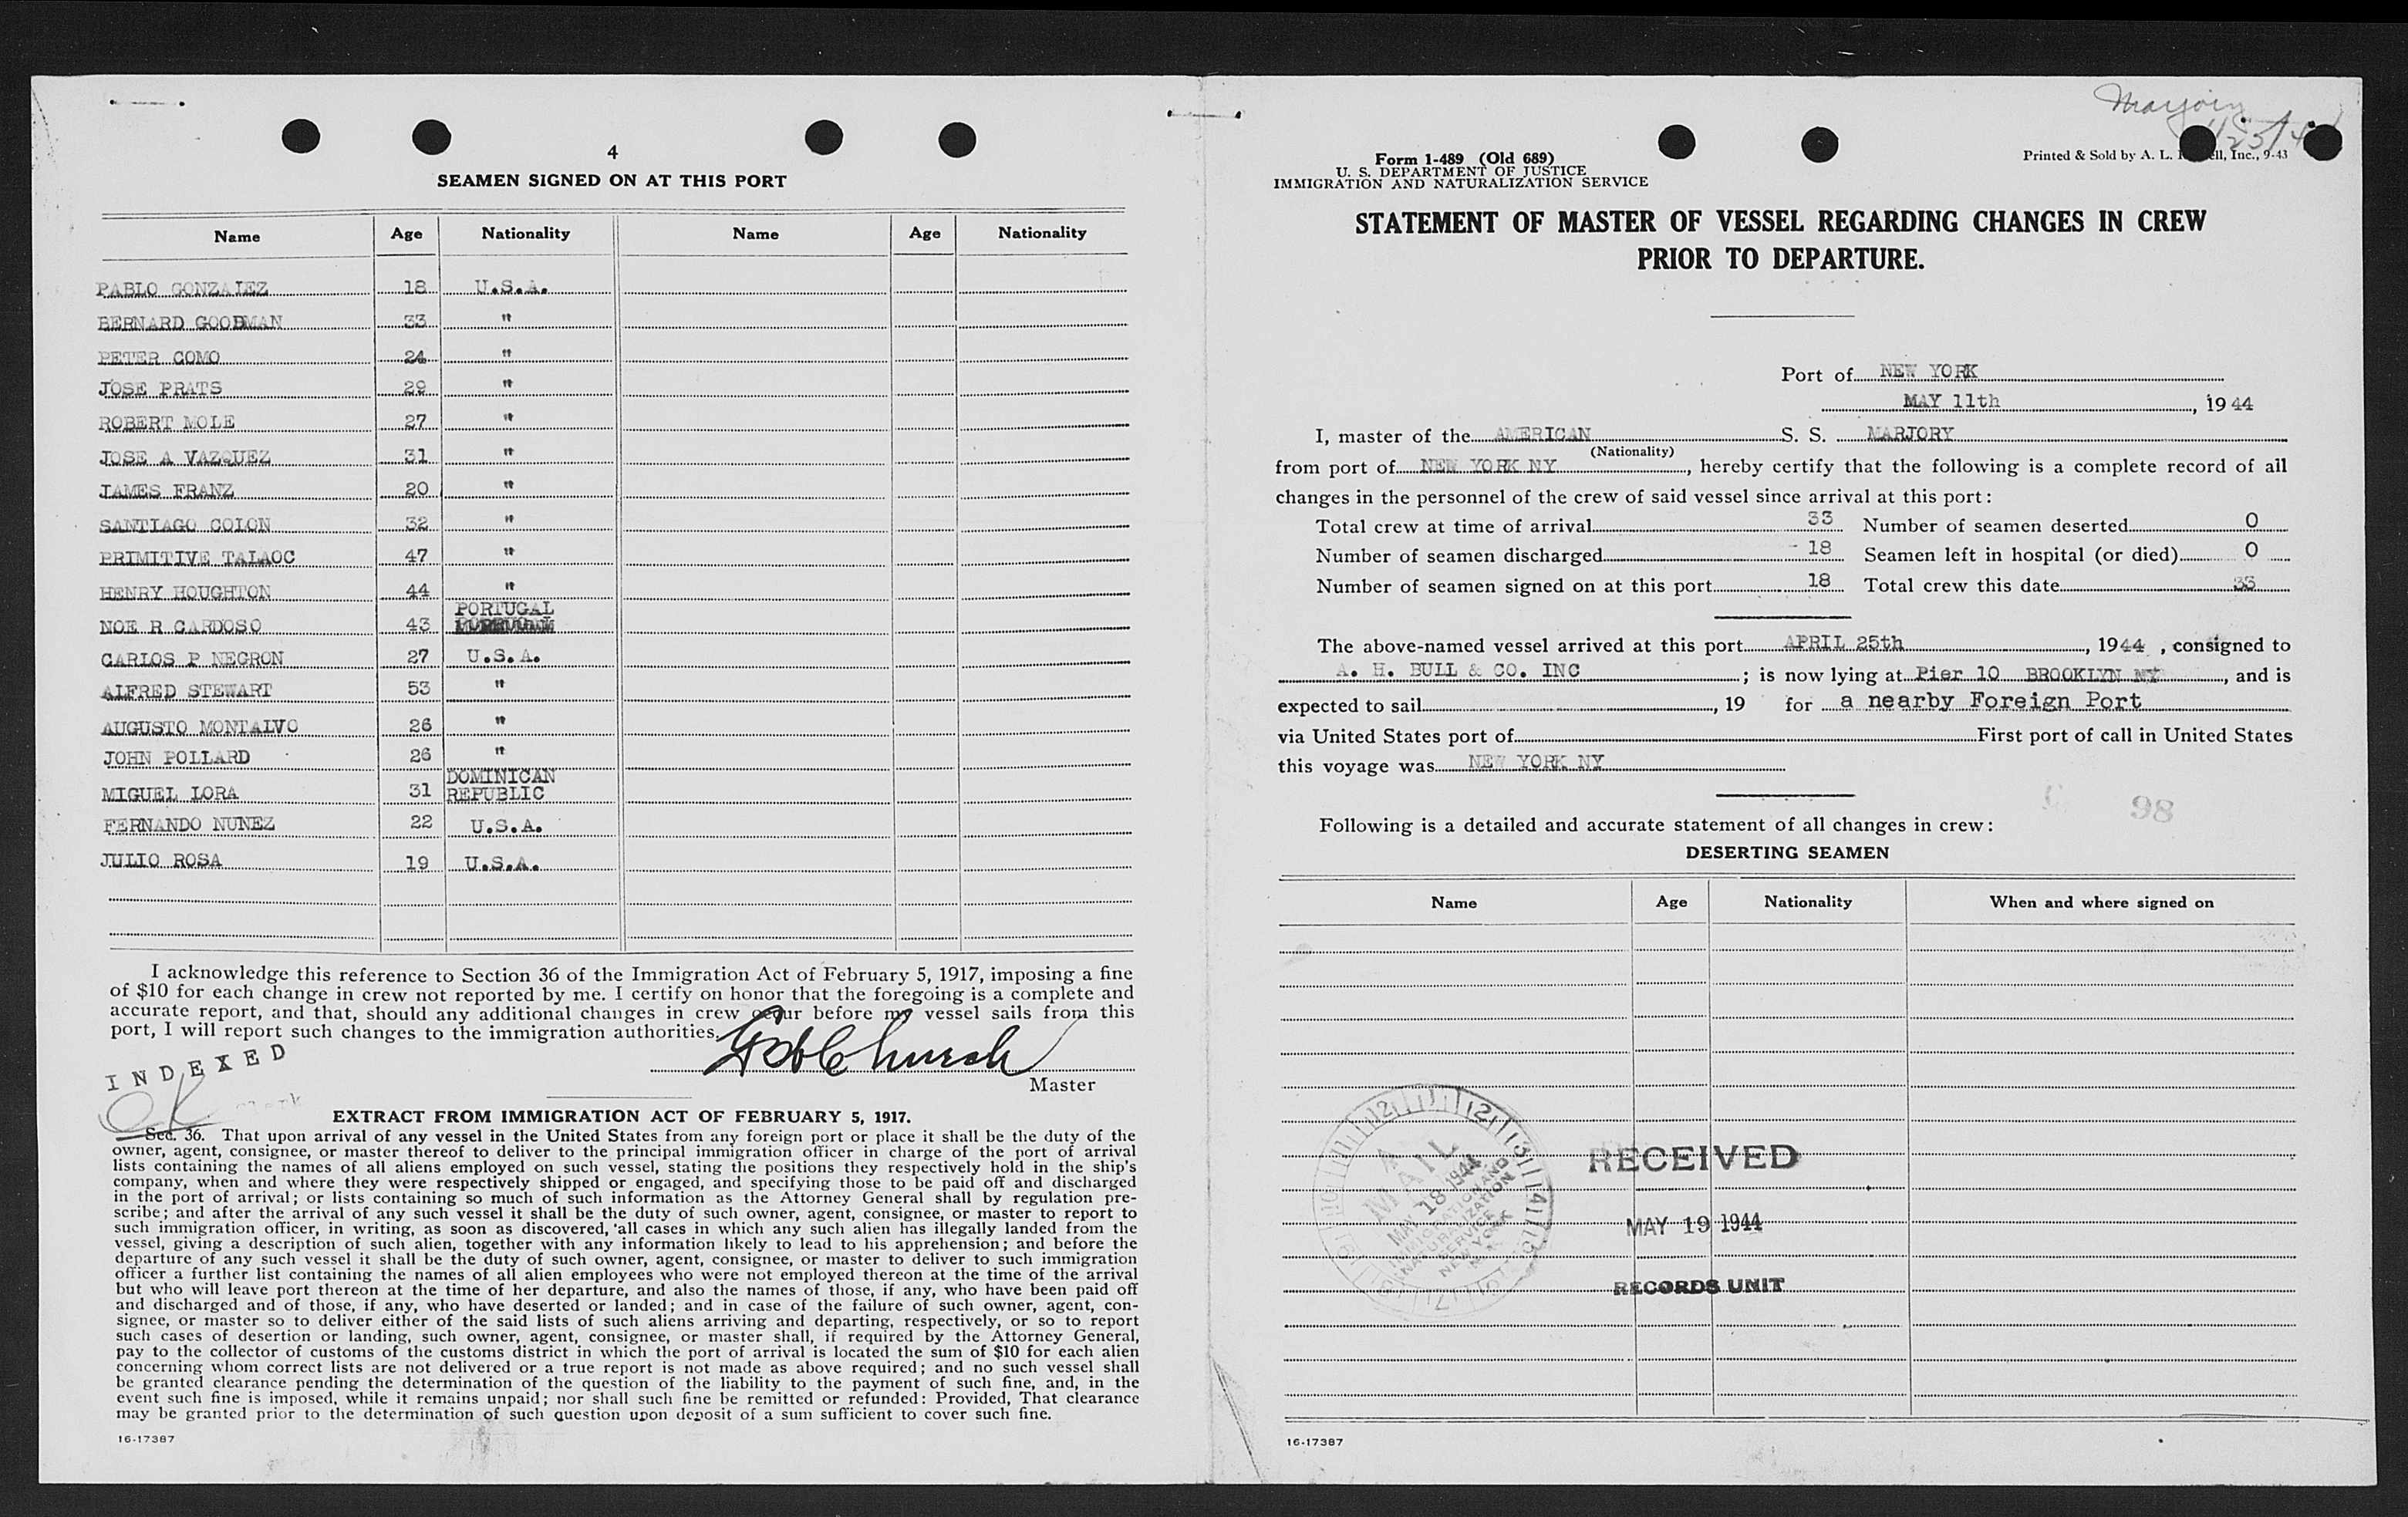 4
SEAMEN SIGNED ON AT THIS PORT
Name Age Nationality Name Age Nationality
PABLO GONZALEZ 18 U.S.A.
BERNARD GOODMAN 33 "
PETER COMO 24 "
JOSE PRATS 29 "
ROBERT MOLE 27 "
JOSE A VAZQUEZ 31 "
JAMES FRANZ 20 "
SANTIAGO COLON 32 "
PRIMITIVE TALAOC 47 "
HENRY HOUGHTON 44 "
NOE R CARDOSO 43 PORTUGAL
CARLOS P NEGRON 27 U.S.A.
ALFRED STEWART 53 "
AUGUSTO MONTALVO 26 "
JOHN POLLARD 26 "
MIGUEL LORA 31 DOMINICAN REPUBLIC
FERNANDO NUNEZ 22 U.S.A.
JULIO ROSA 19 U.S.A.
I acknowledge this reference to Section 36 of the Immigration Act of February 5, 1917, imposing a fine
of $10 for each change in crew not reported by me. I certify on honor that the foregoing is a complete and
accurate report, and that, should any additional changes in crew occur before my vessel sails from this
port, I will report such changes to the immigration authorities.
INDEXED
OK
Church
Master
EXTRACT FROM IMMIGRATION ACT OF FEBRUARY 5, 1917.
Sec. 36. That upon arrival of any vessel in the United States from any foreign port or place it shall be the duty of the
owner, agent, consignee, or master thereof to deliver to the principal immigration officer in charge of the port of arrival
lists containing the names of all aliens employed on such vessel, stating the positions they respectively hold in the ship's
company, when and where they were respectively shipped or engaged, and specifying those to be paid off and discharged
in the port of arrival; or lists containing so much of such information as the Attorney General shall by regulation pre-
scribe; and after the arrival of any such vessel it shall be the duty of such owner, agent, consignee, or master to report to
such immigration officer, in writing, as soon as discovered, all cases in which any such alien has illegally landed from the
vessel, giving a description of such alien, together with any information likely to lead to his apprehension; and before the
departure of any such vessel it shall be the duty of such owner, agent, consignee, or master to deliver to such immigration
officer a further list containing the names of all alien employees who were not employed thereon at the time of the arrival
but who will leave port thereon at the time of her departure, and also the names of those, if any, who have been paid off
and discharged and of those, if any, who have deserted or landed; and in case of the failure of such owner, agent, con-
signee, or master so to deliver either of the said lists of such aliens arriving and departing, respectively, or so to report
such cases of desertion or landing, such owner, agent, consignee, or master shall, if required by the Attorney General,
pay to the collector of customs of the customs district in which the port of arrival is located the sum of $10 for each alien
concerning whom correct lists are not delivered or a true report is not made as above required; and no such vessel shall
be granted clearance pending the determination of the question of the liability to the payment of such fine, and, in the
event such fine is imposed, while it remains unpaid; nor shall such fine be remitted or refunded: Provided, That clearance
may be granted prior to the determination of such question upon deposit of a sum sufficient to cover such fine.
16-17387
Form 1-489 (Old 689)
U. S. DEPARTMENT OF JUSTICE
IMMIGRATION AND NATURALIZATION SERVICE
Printed & Sold by A. L. Inc., 9-43
STATEMENT OF MASTER OF VESSEL REGARDING CHANGES IN CREW
PRIOR TO DEPARTURE.
Port of NEW YORK
MAY 11th, 1944
I, master of the AMERICAN S. S. MARJORY
(Nationality)
from port of NEW YORK NY, hereby certify that the following is a complete record of all
changes in the personnel of the crew of said vessel since arrival at this port:
Total crew at time of arrival 33 Number of seamen deserted 0
Number of seamen discharged 18 Seamen left in hospital (or died) 0
Number of seamen signed on at this port 18 Total crew this date 33
The above-named vessel arrived at this port APRIL 25th, 1944, consigned to
A. H. BULL & CO. INC; is now lying at Pier 10 BROOKLYN NY, and is
expected to sail , 19 for a nearby Foreign Port
via United States port of First port of call in United States
this voyage was NEW YORK NY
98
Following is a detailed and accurate statement of all changes in crew:
DESERTING SEAMEN
Name Age Nationality When and where signed on
MAIL
MAY 18 1944
IMMIGRATION AND
NATURALIZATION
SERVICE
NEW YORK
RECEIVED
MAY 19 1944
RECORDS UNIT
16-17387